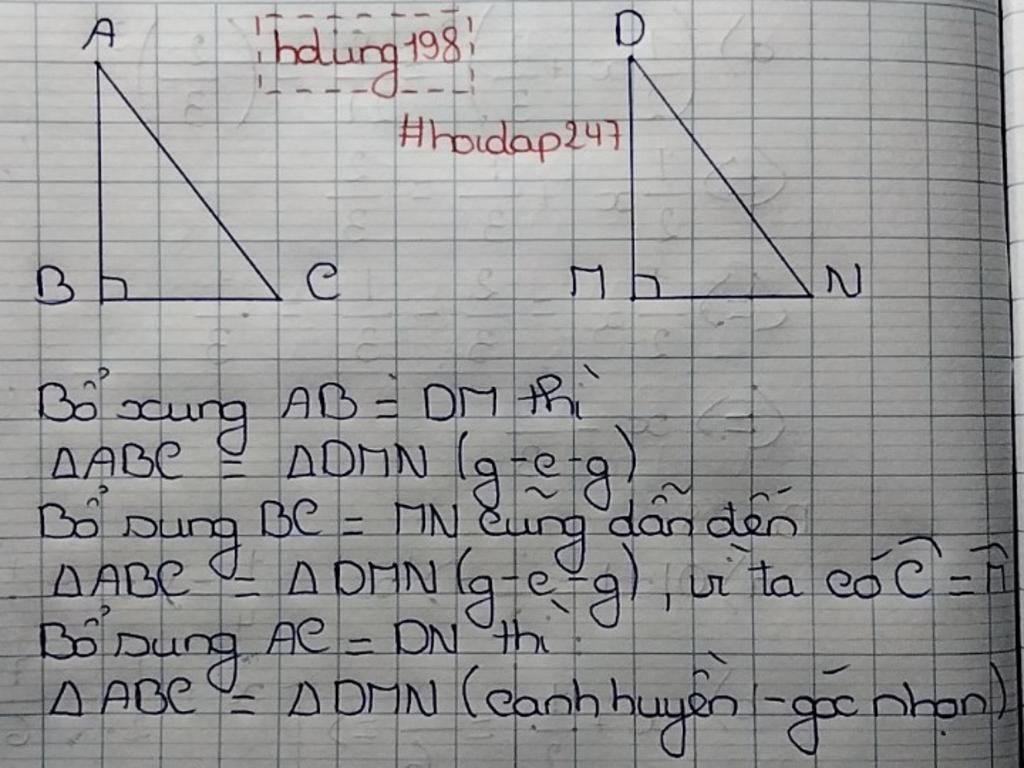 A
hdung198
D
#hoidap247
B
C
M
N
Bổ xung AB = DM thì
ΔABC = ΔDMN (g-c-g)
Bổ sung BC = MN cũng dẫn đến
ΔABC = ΔDMN (g-c-g), vì ta có Ĉ =
Bổ sung AC = DN thì
ΔABC = ΔDMN (cạnh huyền - góc nhọn)